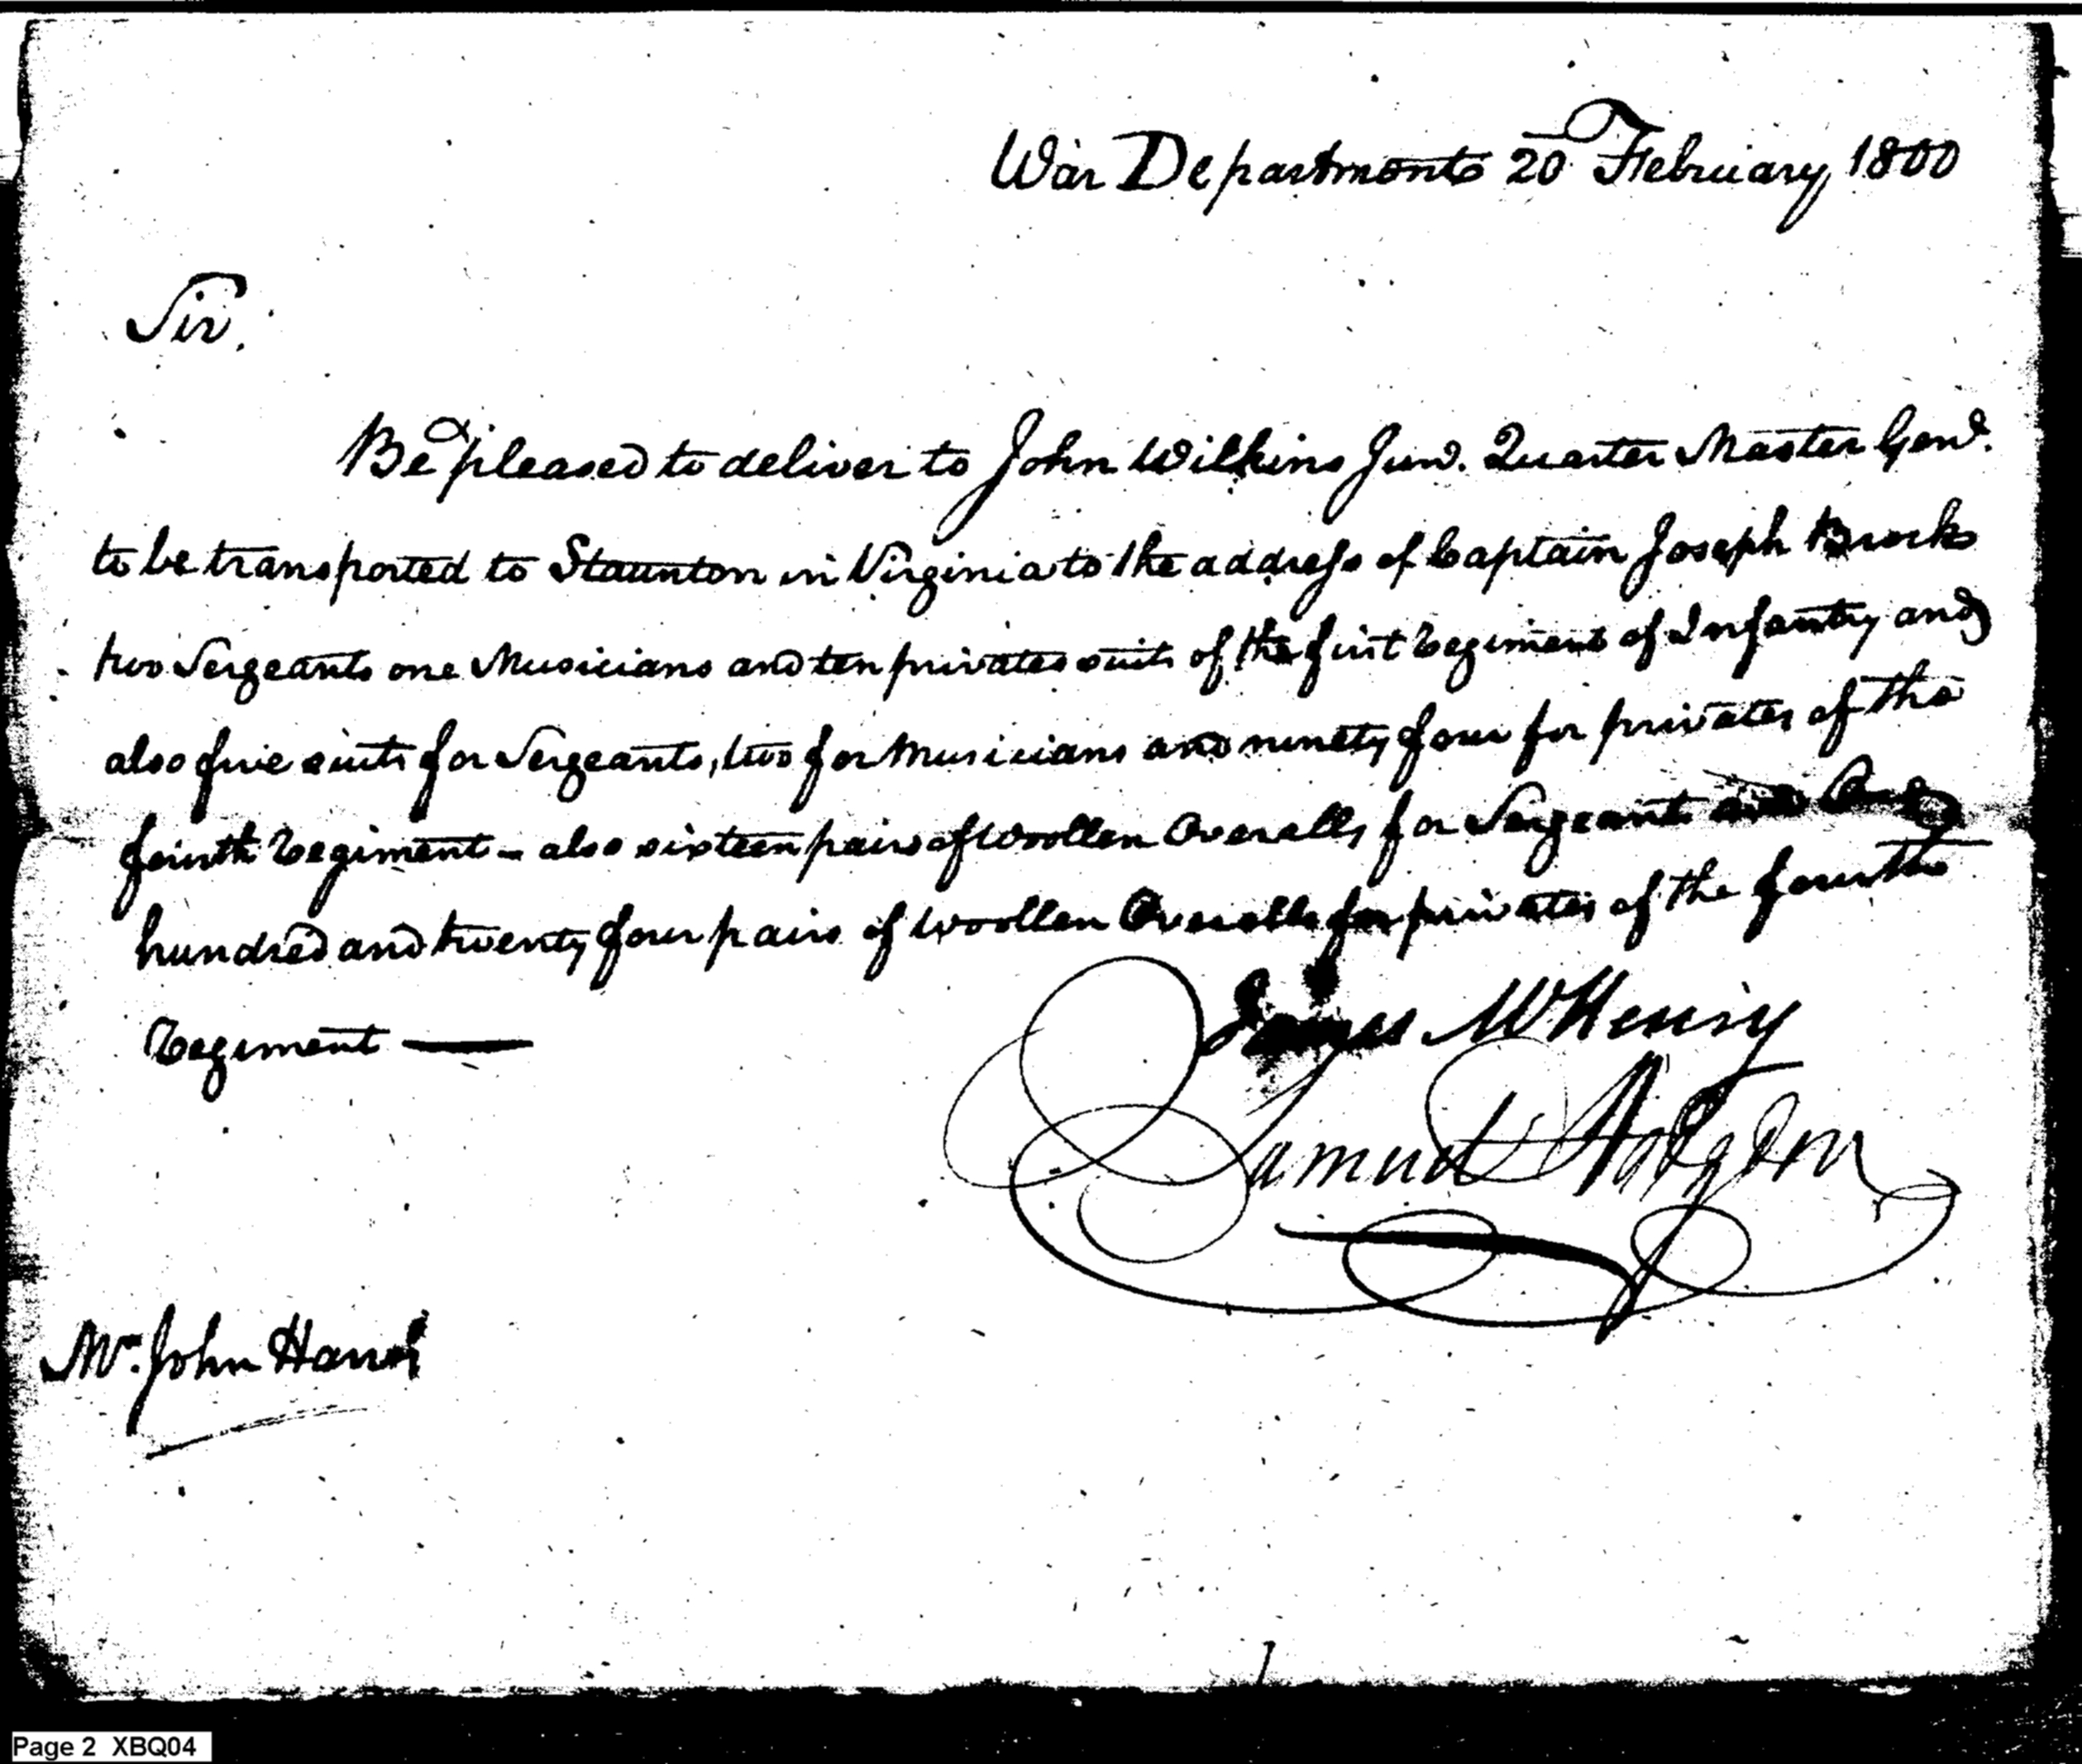 War Department 20 February 1800
Sir.
Be pleased to deliver to John Wilkins Junr. Quarter Master Genl.
to be transported to Staunton in Virginia to the address of Captain Joseph Brock
two Sergeants one Musicians and ten privates suits of the first Regiment of Infantry and
also five suits for Sergeants, two for Musicians and ninety four for privates of the
fourth Regiment - also sixteen pairs of Woollen Overalls for Sergeants and One
hundred and twenty four pairs of woollen Overalls for privates of the fourth
Regiment —
James McHenry
Samuel Hodgdon
Mr. John Harris
Page 2 XBQ04